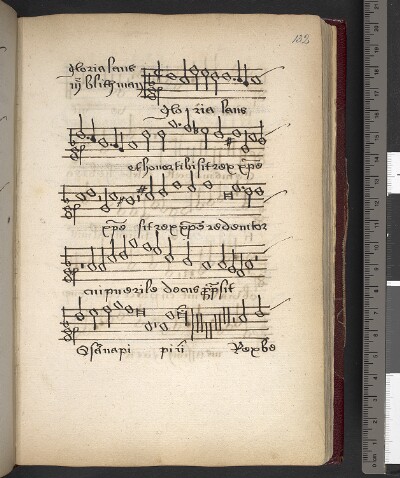 132
gloria laus
iij blithman
glo ria laus
et honor tibi sit rex xpe
xpe sit rex xpe redemtor
cui puerile decus prompsit
Osanna pi
pi ū
Rex be